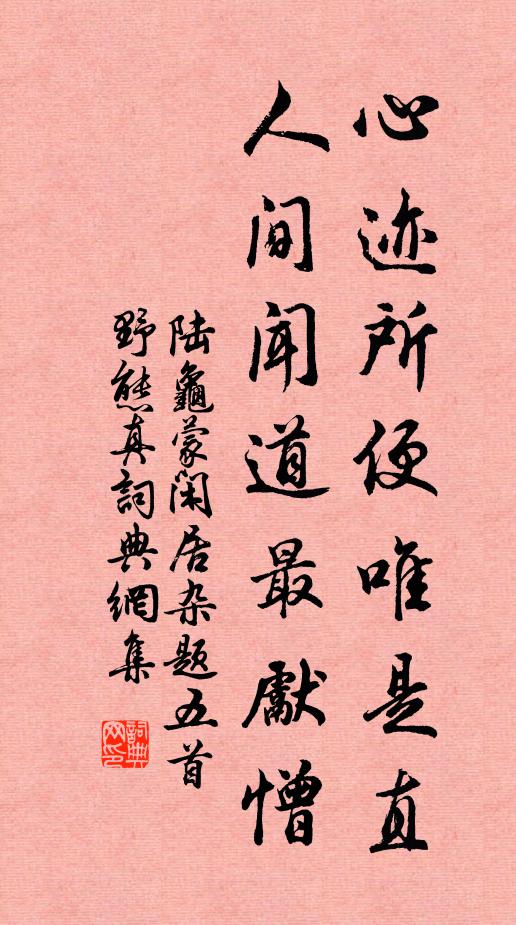 心迹所便唯是直
人间闻道最獻憎
陆龜蒙闲居杂题五首
野熊真詞典網集
詞典网印